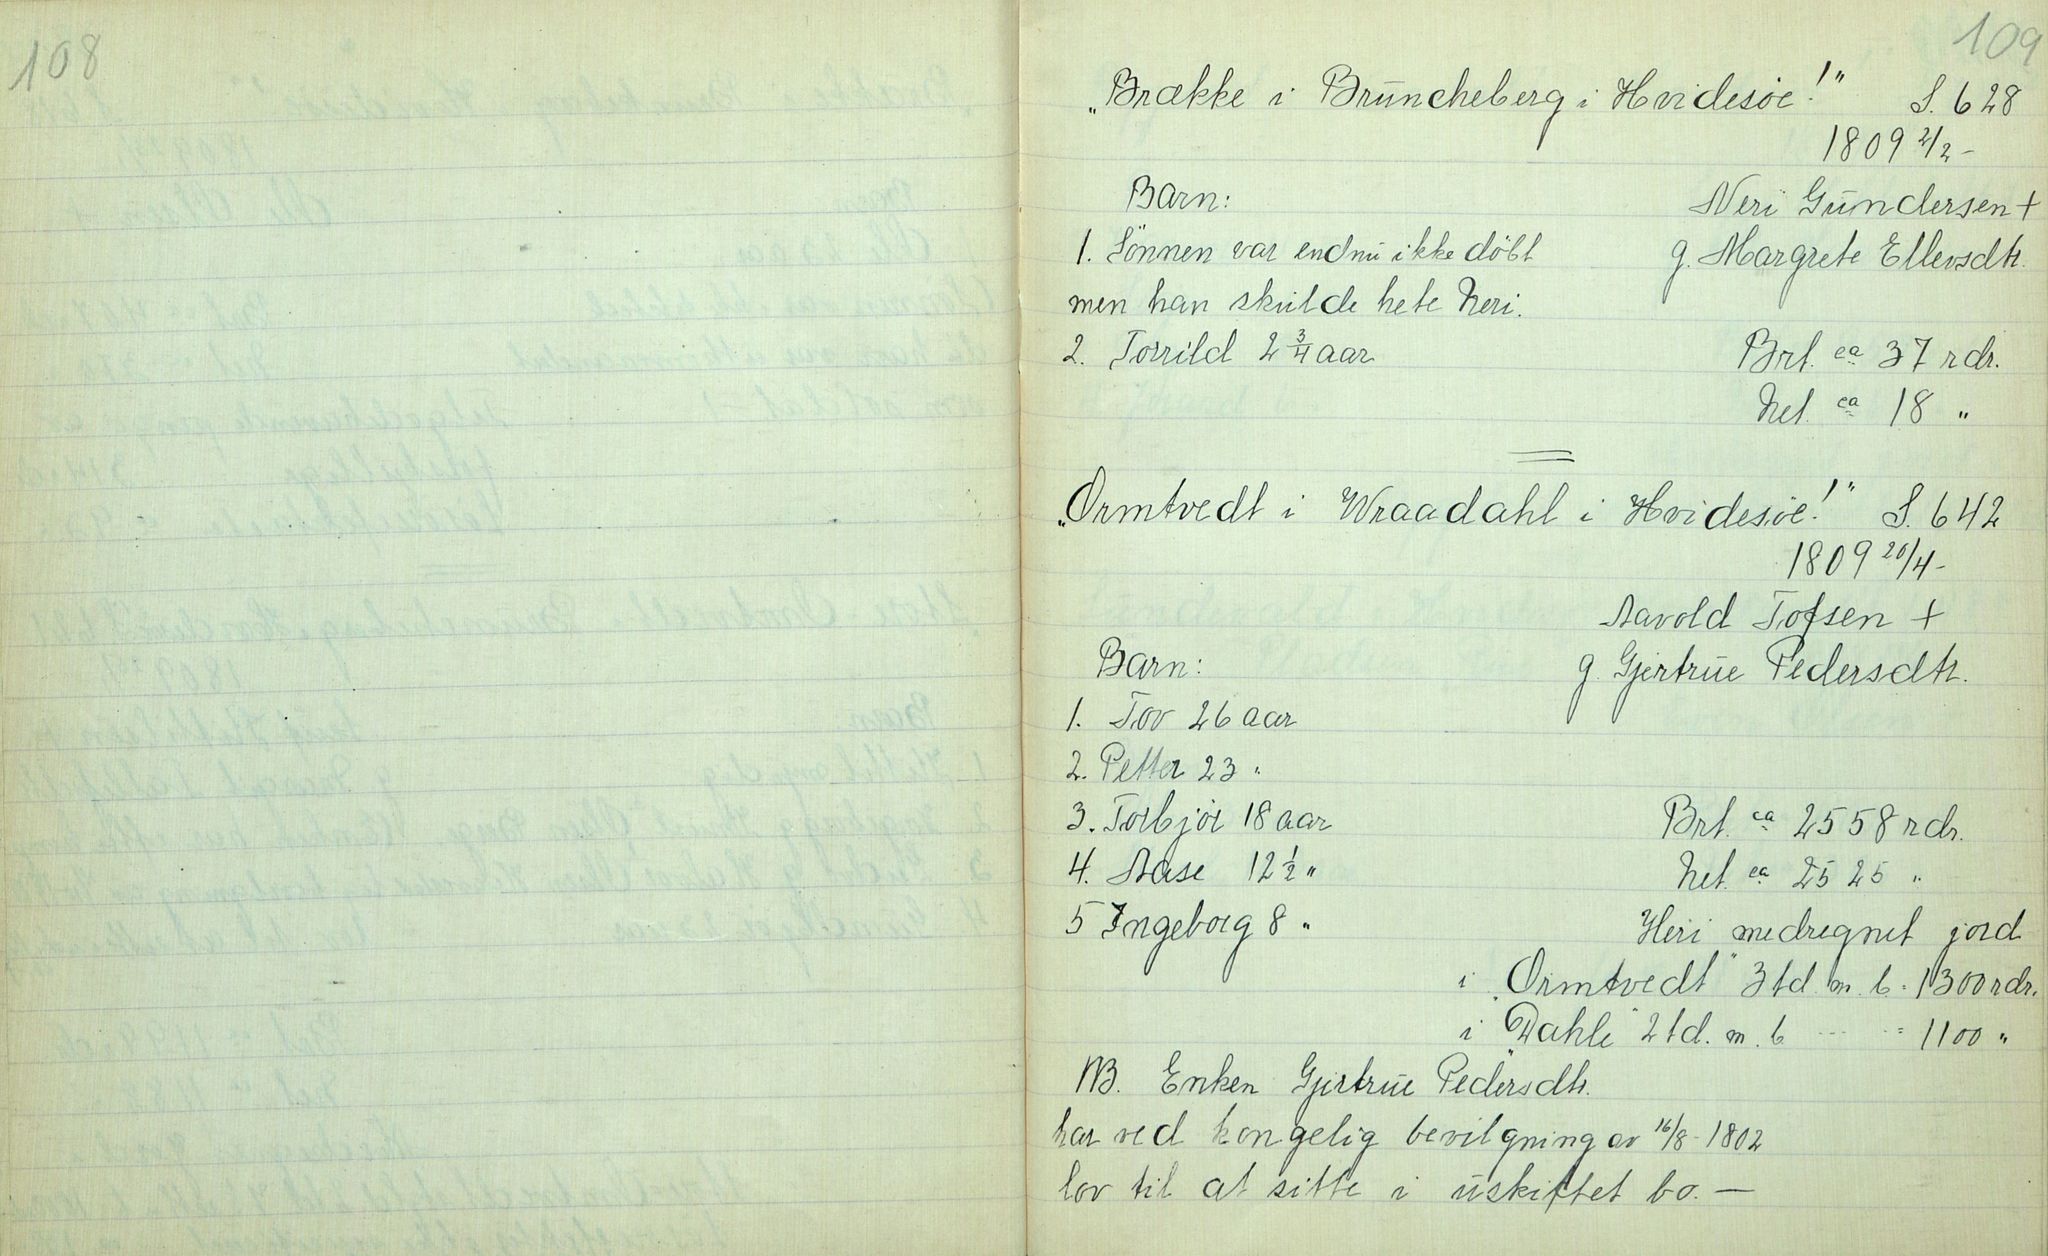 108
109
„Brække i Brüncheberg i Hvidesøe!" S. 628
1809 2/2-
Barn: Neri Gündersen +
1. Sönnen var endnü ikke döbt g. Margrete Ellevsdtr.
men han skülde hete Neri.
2. Torrild 2 3/4 aar Brt. ca 37 rdr.
Net. ca 18 "
„Ormtvedt i Wraadahl i Hvidesøe!" S. 642
1809 20/4-
Aavold Tofsen +
Barn: g. Gjertrüe Pedersdtr.
1. Tov 26 aar
2. Petter 23 "
3. Torbjør 18 aar Brt. ca 2558 rdr.
4. Aase 12 1/2 " Net. ca 2525 "
5 Ingeborg 8 " Heri medregnet jord
i „Ormtvedt" 3 td. m. b. = 1300 rdr.
i „Dahle" 2 td. m. b = 1100 "
NB. Enken Gjertrüe Pedersdtr.
har ved kongelig bevilgning av 16/8-1802
lov til at sitte i üskiftet bo. —